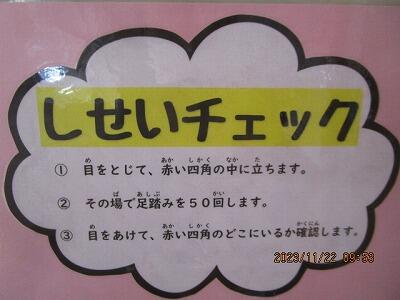 しせいチェック
① 目をとじて、赤い四角の中に立ちます。
② その場で足踏みを５０回します。
③ 目をあけて、赤い四角のどこにいるか確認します。
2023/11/22 09:53